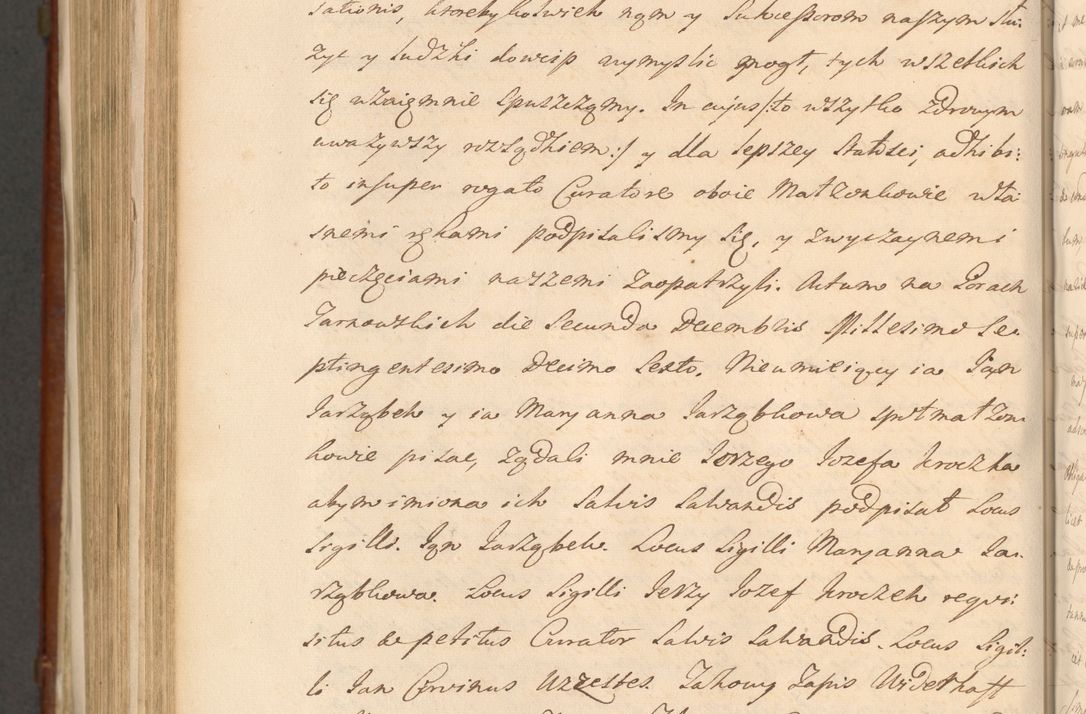 sationis, ktorebykolwiek nąm y Sukcessorom naszym słu:
zyć y ludzki dowcip wymyslić mogł, tych wszelkich
się wzaiemnie spuszczamy. In cujus /:to wszytko zdrowym
uwazywszy rozsądkiem:/ y dla lepszey stałosci, adhibi:
to insuper rogato Curatore oboie Małzonkowie wła
snemi rękami podpisalismy się, y zwyczaynemi
pieczęciami naszemi zaopatrzyli. Actum na Gorach
Tarnowskich die Secunda Decembris Millesimo Se:
ptingentesimo Decimo Sexto. Nieumieiący ia Ian
Iarząbek y ia Maryanna Iarząbkowa społmałzon
kowie pisać, ządali mnie Ierzego Iozefa Kroczka
abym imiona ich Salvis Salvandis podpisał Locus
Sigilli. Ian Iarząbek. Locus Sigilli Maryanna Ia:
rząbkowa. Locus Sigilli Ierzy Iozef Kroczek requi:
situs ac petitus Curator Salvis Salvandis. Locus Sigil:
li Ian Corvinus Urzestes. Takowy Zapis Widerkaff